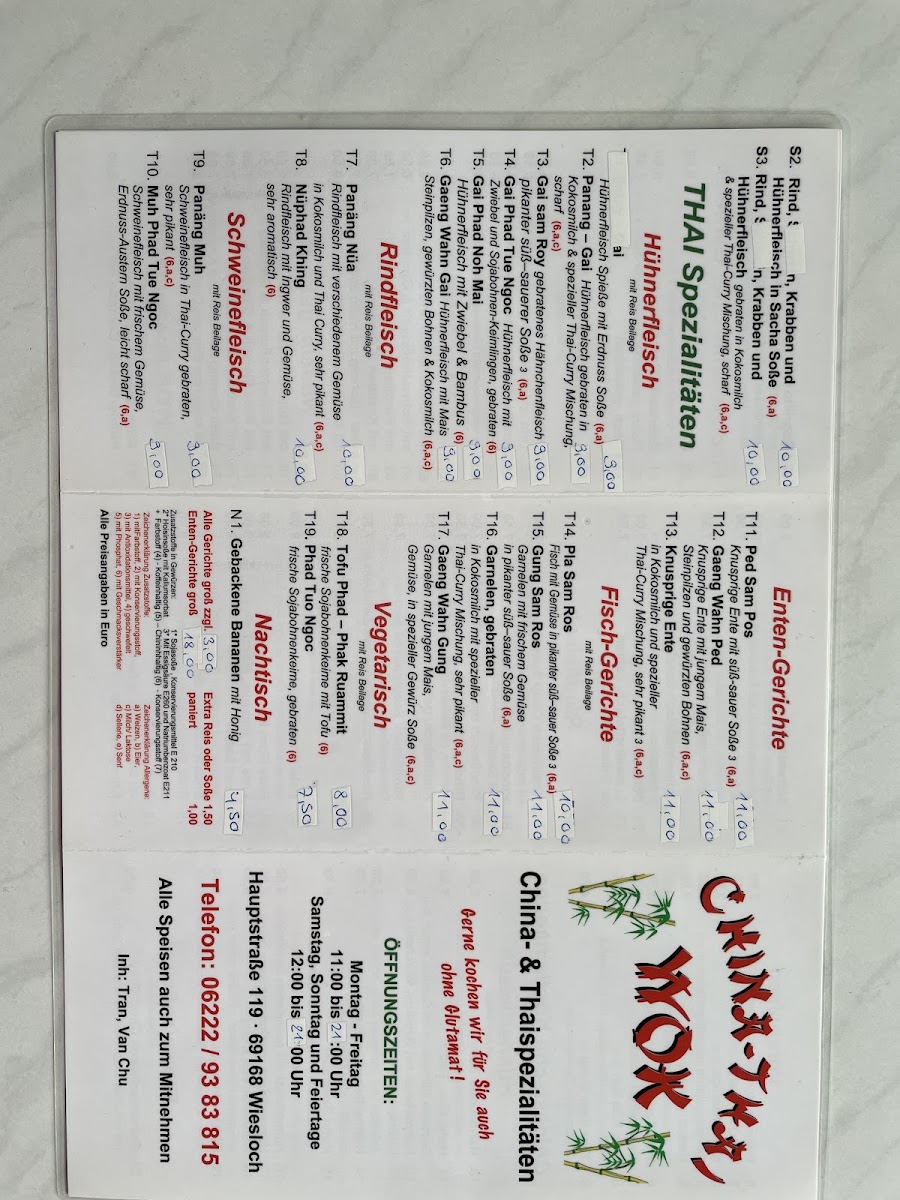 S2. Rind, S n, Krabben und
Hühnerfleisch in Sacha Soße (6,a) 10,00
S3. Rind, S n, Krabben und
Hühnerfleisch gebraten in Kokosmilch
& spezieller Thai-Curry Mischung, scharf (6,a,c) 10,00
THAI Spezialitäten
Hühnerfleisch
mit Reis Beilage
ai
Hühnerfleisch Spieße mit Erdnuss Soße (6,a) 9,00
T2. Panang – Gai Hühnerfleisch gebraten in
Kokosmilch & spezieller Thai-Curry Mischung,
scharf (6,a,c) 9,00
T3. Gai sam Roy gebratenes Hähnchenfleisch
pikanter süß–sauerer Soße 3 (6,a) 9,00
T4. Gai Phad Tue Ngoc Hühnerfleisch mit
Zwiebel und Sojabohnen-Keimlingen, gebraten (6) 9,00
T5. Gai Phad Noh Mai
Hühnerfleisch mit Zwiebel & Bambus (6) 9,00
T6. Gaeng Wahn Gai Hühnerfleisch mit Mais
Steinpilzen, gewürzten Bohnen & Kokosmilch (6,a,c) 9,00
Rindfleisch
mit Reis Beilage
T7. Panäng Nüa
Rindfleisch mit verschiedenem Gemüse
in Kokosmilch und Thai Curry, sehr pikant (6,a,c) 10,00
T8. Nüphad Khing
Rindfleisch mit Ingwer und Gemüse,
sehr aromatisch (6) 10,00
Schweinefleisch
mit Reis Beilage
T9. Panäng Muh
Schweinefleisch in Thai-Curry gebraten,
sehr pikant (6,a,c) 9,00
T10. Muh Phad Tue Ngoc
Schweinefleisch mit frischem Gemüse,
Erdnuss-Austern Soße, leicht scharf (6,a) 9,00
Enten-Gerichte
mit Reis Beilage
T11. Ped Sam Pos
Knusprige Ente mit süß–sauer Soße 3 (6,a) 11,00
T12. Gaeng Wahn Ped
Knusprige Ente mit jungem Mais,
Steinpilzen und gewürzten Bohnen (6,a,c) 11,00
T13. Knusprige Ente
in Kokosmilch und spezieller
Thai-Curry Mischung, sehr pikant 3 (6,a,c) 11,00
Fisch-Gerichte
mit Reis Beilage
T14. Pla Sam Ros
Fisch mit Gemüse in pikanter süß–sauer Soße 3 (6,a) 10,00
T15. Gung Sam Ros
Garnelen mit frischem Gemüse
in pikanter süß–sauer Soße (6,a) 11,00
T16. Garnelen, gebraten
in Kokosmilch mit spezieller
Thai-Curry Mischung, sehr pikant (6,a,c) 11,00
T17. Gaeng Wahn Gung
Garnelen mit jungem Mais,
Gemüse, in spezieller Gewürz Soße (6,a,c) 11,00
Vegetarisch
mit Reis Beilage
T18. Tofu Phad – Phak Ruammit
frische Sojabohnenkeime mit Tofu (6) 8,00
T19. Phad Tuo Ngoc
frische Sojabohnenkeime, gebraten (6) 7,50
Nachtisch
N1. Gebackene Bananen mit Honig 4,50
Alle Gerichte groß zzgl. 3,00 Extra Reis oder Soße 1,50
Enten-Gerichte groß 18,00 paniert 1,00
Zusatzstoffe in Gewürzen: 1* Sojasoße, Konservierungsmittel E 210
2* Hoisinsoße mit Kaliumsorbat 3* Mit Essigsäure E260 und Natriumbenzoat E211
Zeichenerklärung Zusatzstoffe: Zeichenerklärung Allergene:
1) mit Farbstoff, 2) mit Konservierungsstoff, a) Weizen, b) Eier,
3) mit Antioxidationsmittel, 4) geschwefelt c) Milch/ Laktose
5) mit Phosphet, 6) mit Geschmacksverstärker d) Sellerie, e) Senf
Alle Preisangaben in Euro
CHINA-THAI
WOK
China- & Thaispezialitäten
Gerne kochen wir für Sie auch
ohne Glutamat!
ÖFFNUNGSZEITEN:
Montag - Freitag
11:00 bis 21:00 Uhr
Samstag, Sonntag und Feiertage
12:00 bis 21:00 Uhr
Hauptstraße 119 · 69168 Wiesloch
Telefon: 06222 / 93 83 815
Alle Speisen auch zum Mitnehmen
Inh: Tran, Van Chu